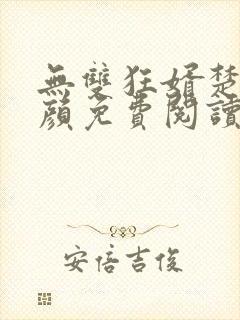 無雙狂婿楚
顏免費閱讀
安倍吉俊